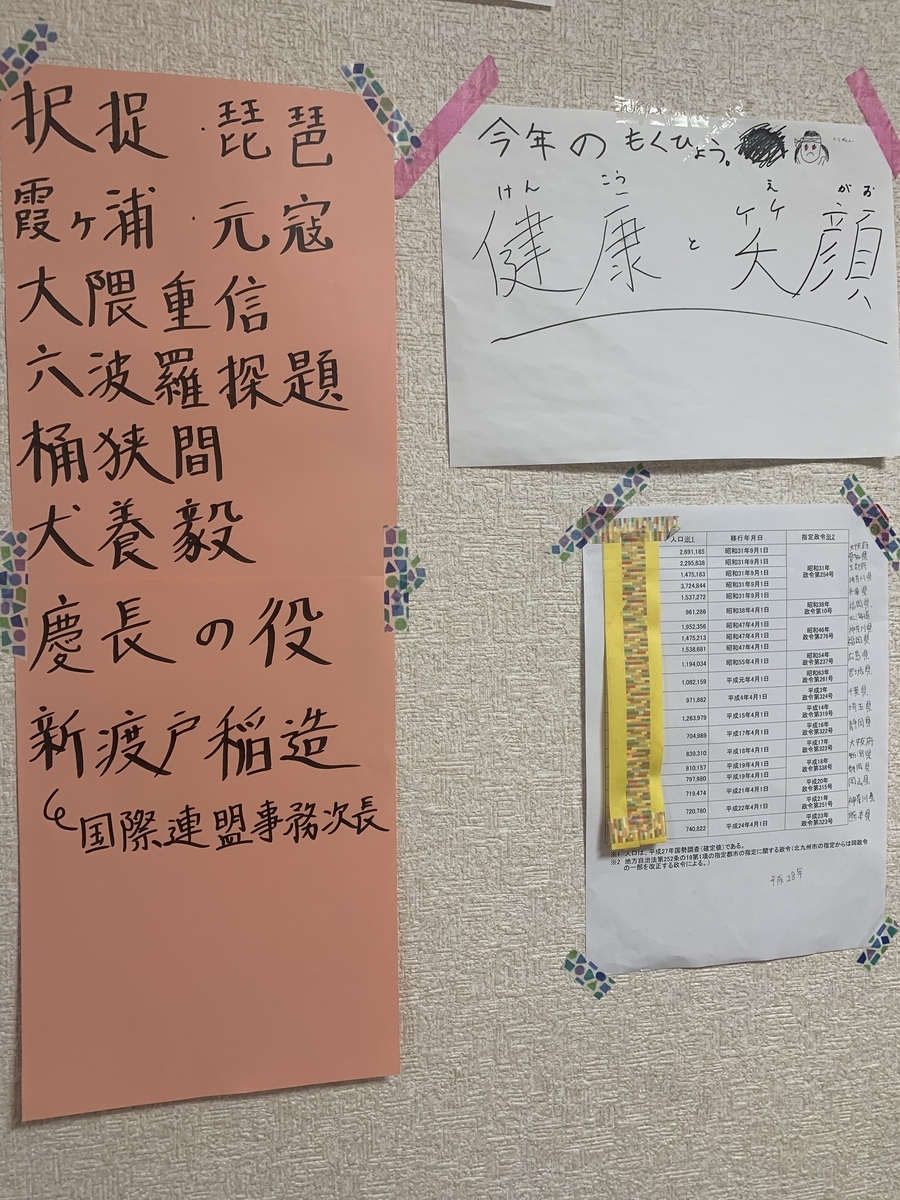 択捉・琵琶
霞ヶ浦・元寇
大隈重信
六波羅探題
桶狭間
犬養毅
慶長の役
新渡戸稲造
国際連盟事務次長
今年のもくひょう。
けん こう え がお
健康と笑顔
人口※1 移行年月日 指定政令※2
2,691,185 昭和31年9月1日 昭和31年政令第254号 大阪府
2,295,638 昭和31年9月1日 愛知県
1,475,183 昭和31年9月1日 京都府
3,724,844 昭和31年9月1日 神奈川県
1,537,272 昭和31年9月1日 兵庫県
961,286 昭和38年4月1日 昭和38年政令第10号 福岡県
1,952,356 昭和47年4月1日 昭和46年政令第276号 北海道
1,475,213 昭和47年4月1日 神奈川県
1,538,681 昭和47年4月1日 福岡県
1,194,034 昭和55年4月1日 昭和54年政令第237号 広島県
1,082,159 平成元年4月1日 昭和63年政令第261号 宮城県
971,882 平成4年4月1日 平成3年政令第324号 千葉県
1,263,979 平成15年4月1日 平成14年政令第319号 埼玉県
704,989 平成17年4月1日 平成16年政令第322号 静岡県
839,310 平成18年4月1日 平成17年政令第323号 大阪府
810,157 平成19年4月1日 平成18年政令第338号 新潟県
797,980 平成19年4月1日 静岡県
719,474 平成21年4月1日 平成20年政令第315号 岡山県
720,780 平成22年4月1日 平成21年政令第251号 神奈川県
740,822 平成24年4月1日 平成23年政令第323号 熊本県
※1 人口は、平成27年国勢調査(確定値)である。
※2 地方自治法第252条の19第1項の指定都市の指定に関する政令(北九州市の指定からは同政令
の一部を改正する政令による。)
平成28年